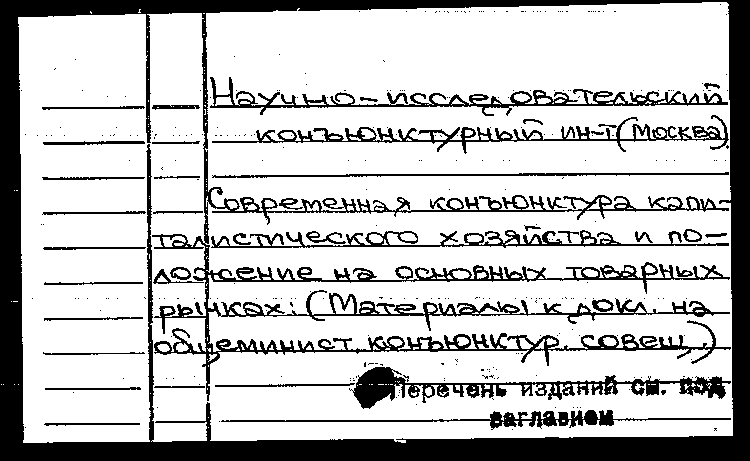 Научно-исследовательский
конъюнктурный ин-т (Москва)
Современная конъюнктура капи-
талистического хозяйства и по-
ложение на основных товарных
рынках: (Материалы к докл. на
общеминист. конъюнктур. совещ.)
Перечень изданий см. под
заглавием